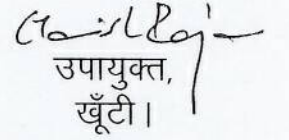 उपायुक्त,
खूँटी।